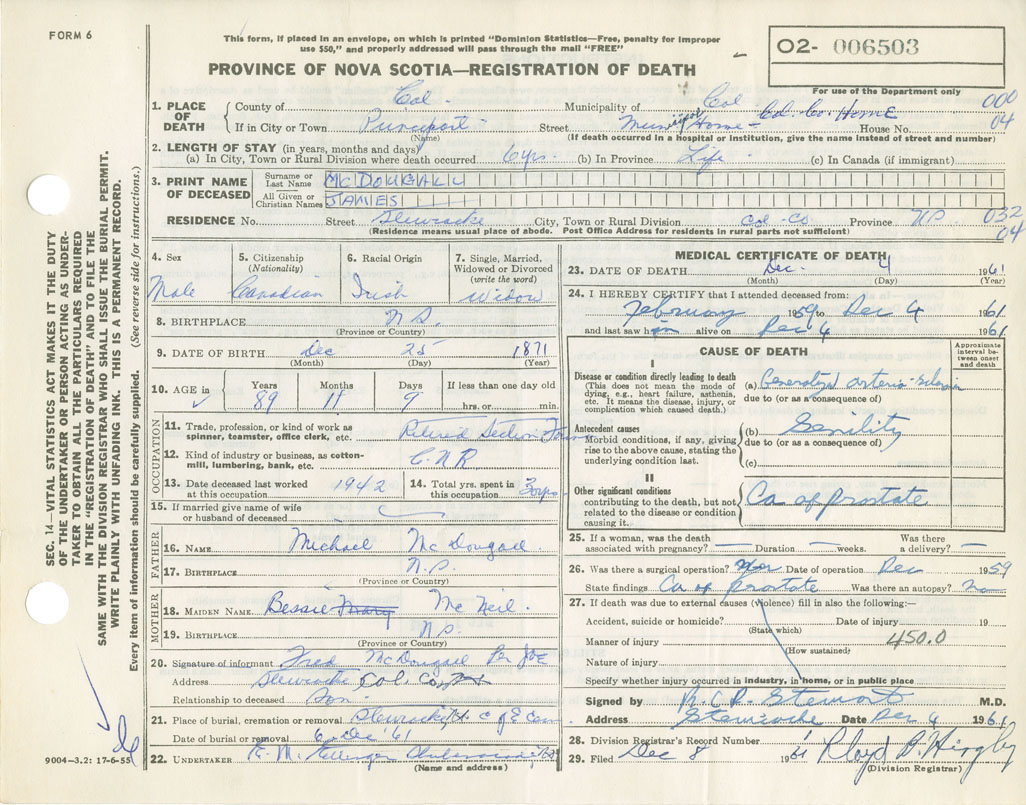 FORM 6
This form, if placed in an envelope, on which is printed "Dominion Statistics—Free, penalty for improper
use $50," and properly addressed will pass through the mail "FREE"
O2- 006503
PROVINCE OF NOVA SCOTIA—REGISTRATION OF DEATH
For use of the Department only
000
04
1. PLACE OF DEATH
County of Col. Municipality of Col
If in City or Town Street Home - Col. Co. Home House No.
(Name) (If death occurred in a hospital or institution, give the name instead of street and number)
2. LENGTH OF STAY (in years, months and days)
(a) In City, Town or Rural Division where death occurred 6 yrs. (b) In Province Life (c) In Canada (if immigrant)
3. PRINT NAME OF DECEASED
Surname or Last Name McDOUGALL
All Given or Christian Names JAMES
RESIDENCE No. Street City, Town or Rural Division Col - Co Province N.S. 032
(Residence means usual place of abode. Post Office Address for residents in rural parts not sufficient) 04
4. Sex
Male
5. Citizenship
(Nationality)
Canadian
6. Racial Origin
Irish
7. Single, Married, Widowed or Divorced
(write the word)
Widow
8. BIRTHPLACE N.S.
(Province or Country)
9. DATE OF BIRTH Dec 25 1871
(Month) (Day) (Year)
10. AGE in Years Months Days If less than one day old
89 11 9 hrs. or min.
OCCUPATION
11. Trade, profession, or kind of work as
spinner, teamster, office clerk, etc. Retired Section
12. Kind of industry or business, as cotton-
mill, lumbering, bank, etc. C.N.R
13. Date deceased last worked
at this occupation 1942
14. Total yrs. spent in
this occupation yrs
15. If married give name of wife
or husband of deceased
FATHER
16. NAME Michael McDougall
17. BIRTHPLACE N.S.
(Province or Country)
MOTHER
18. MAIDEN NAME Bessie McNeil
19. BIRTHPLACE N.S.
(Province or Country)
20. Signature of informant Fred McDougall Per JOE
Address Col. Co.
Relationship to deceased Son
21. Place of burial, cremation or removal C of E Cem
Date of burial or removal 6 Dec '61
22. UNDERTAKER
(Name and address)
9004—3.2: 17-6-55
MEDICAL CERTIFICATE OF DEATH
23. DATE OF DEATH Dec. 4 1961
(Month) (Day) (Year)
24. I HEREBY CERTIFY that I attended deceased from:
February 1959 to Dec 4 1961
and last saw him alive on Dec 4 1961
CAUSE OF DEATH
Approximate interval between onset and death
I
Disease or condition directly leading to death
(This does not mean the mode of
dying, e.g., heart failure, asthenia,
etc. It means the disease, injury, or
complication which caused death.)
(a) Generalized arterio-
due to (or as a consequence of)
Antecedent causes
Morbid conditions, if any, giving
rise to the above cause, stating the
underlying condition last.
(b) Senility
due to (or as a consequence of)
(c)
II
Other significant conditions
contributing to the death, but not
related to the disease or condition
causing it.
Ca of prostate
25. If a woman, was the death
associated with pregnancy? — Duration — weeks. Was there
a delivery? —
26. Was there a surgical operation? Yes Date of operation Dec 1959
State findings Ca of prostate Was there an autopsy? No
27. If death was due to external causes (violence) fill in also the following:—
Accident, suicide or homicide? Date of injury 19
(State which)
Manner of injury 450.0
(How sustained)
Nature of injury
Specify whether injury occurred in industry, in home, or in public place
Signed by Stewart M.D.
Address Date Dec 4 1961
28. Division Registrar's Record Number
29. Filed Dec 8 1961 Lloyd
(Division Registrar)
SEC. 14—VITAL STATISTICS ACT MAKES IT THE DUTY
OF THE UNDERTAKER OR PERSON ACTING AS UNDER-
TAKER TO OBTAIN ALL THE PARTICULARS REQUIRED
IN THE "REGISTRATION OF DEATH" AND TO FILE THE
SAME WITH THE DIVISION REGISTRAR WHO SHALL ISSUE THE BURIAL PERMIT.
WRITE PLAINLY WITH UNFADING INK. THIS IS A PERMANENT RECORD.
Every item of information should be carefully supplied. (See reverse side for instructions.)